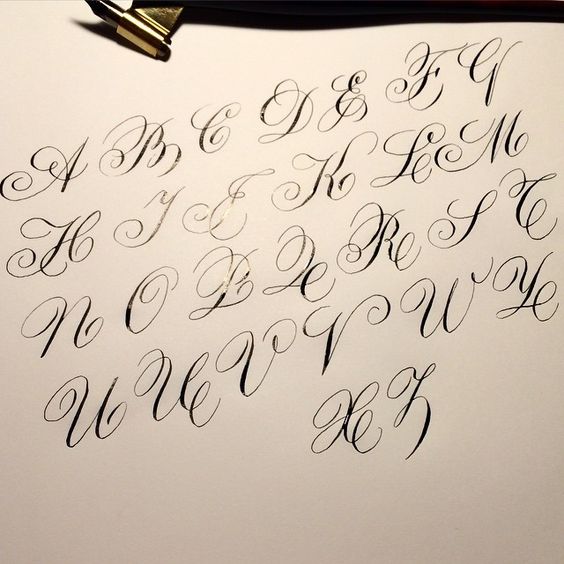 A B C D E F G
H I J K L M
N O P Q R S T
U U V V W Y
X Z